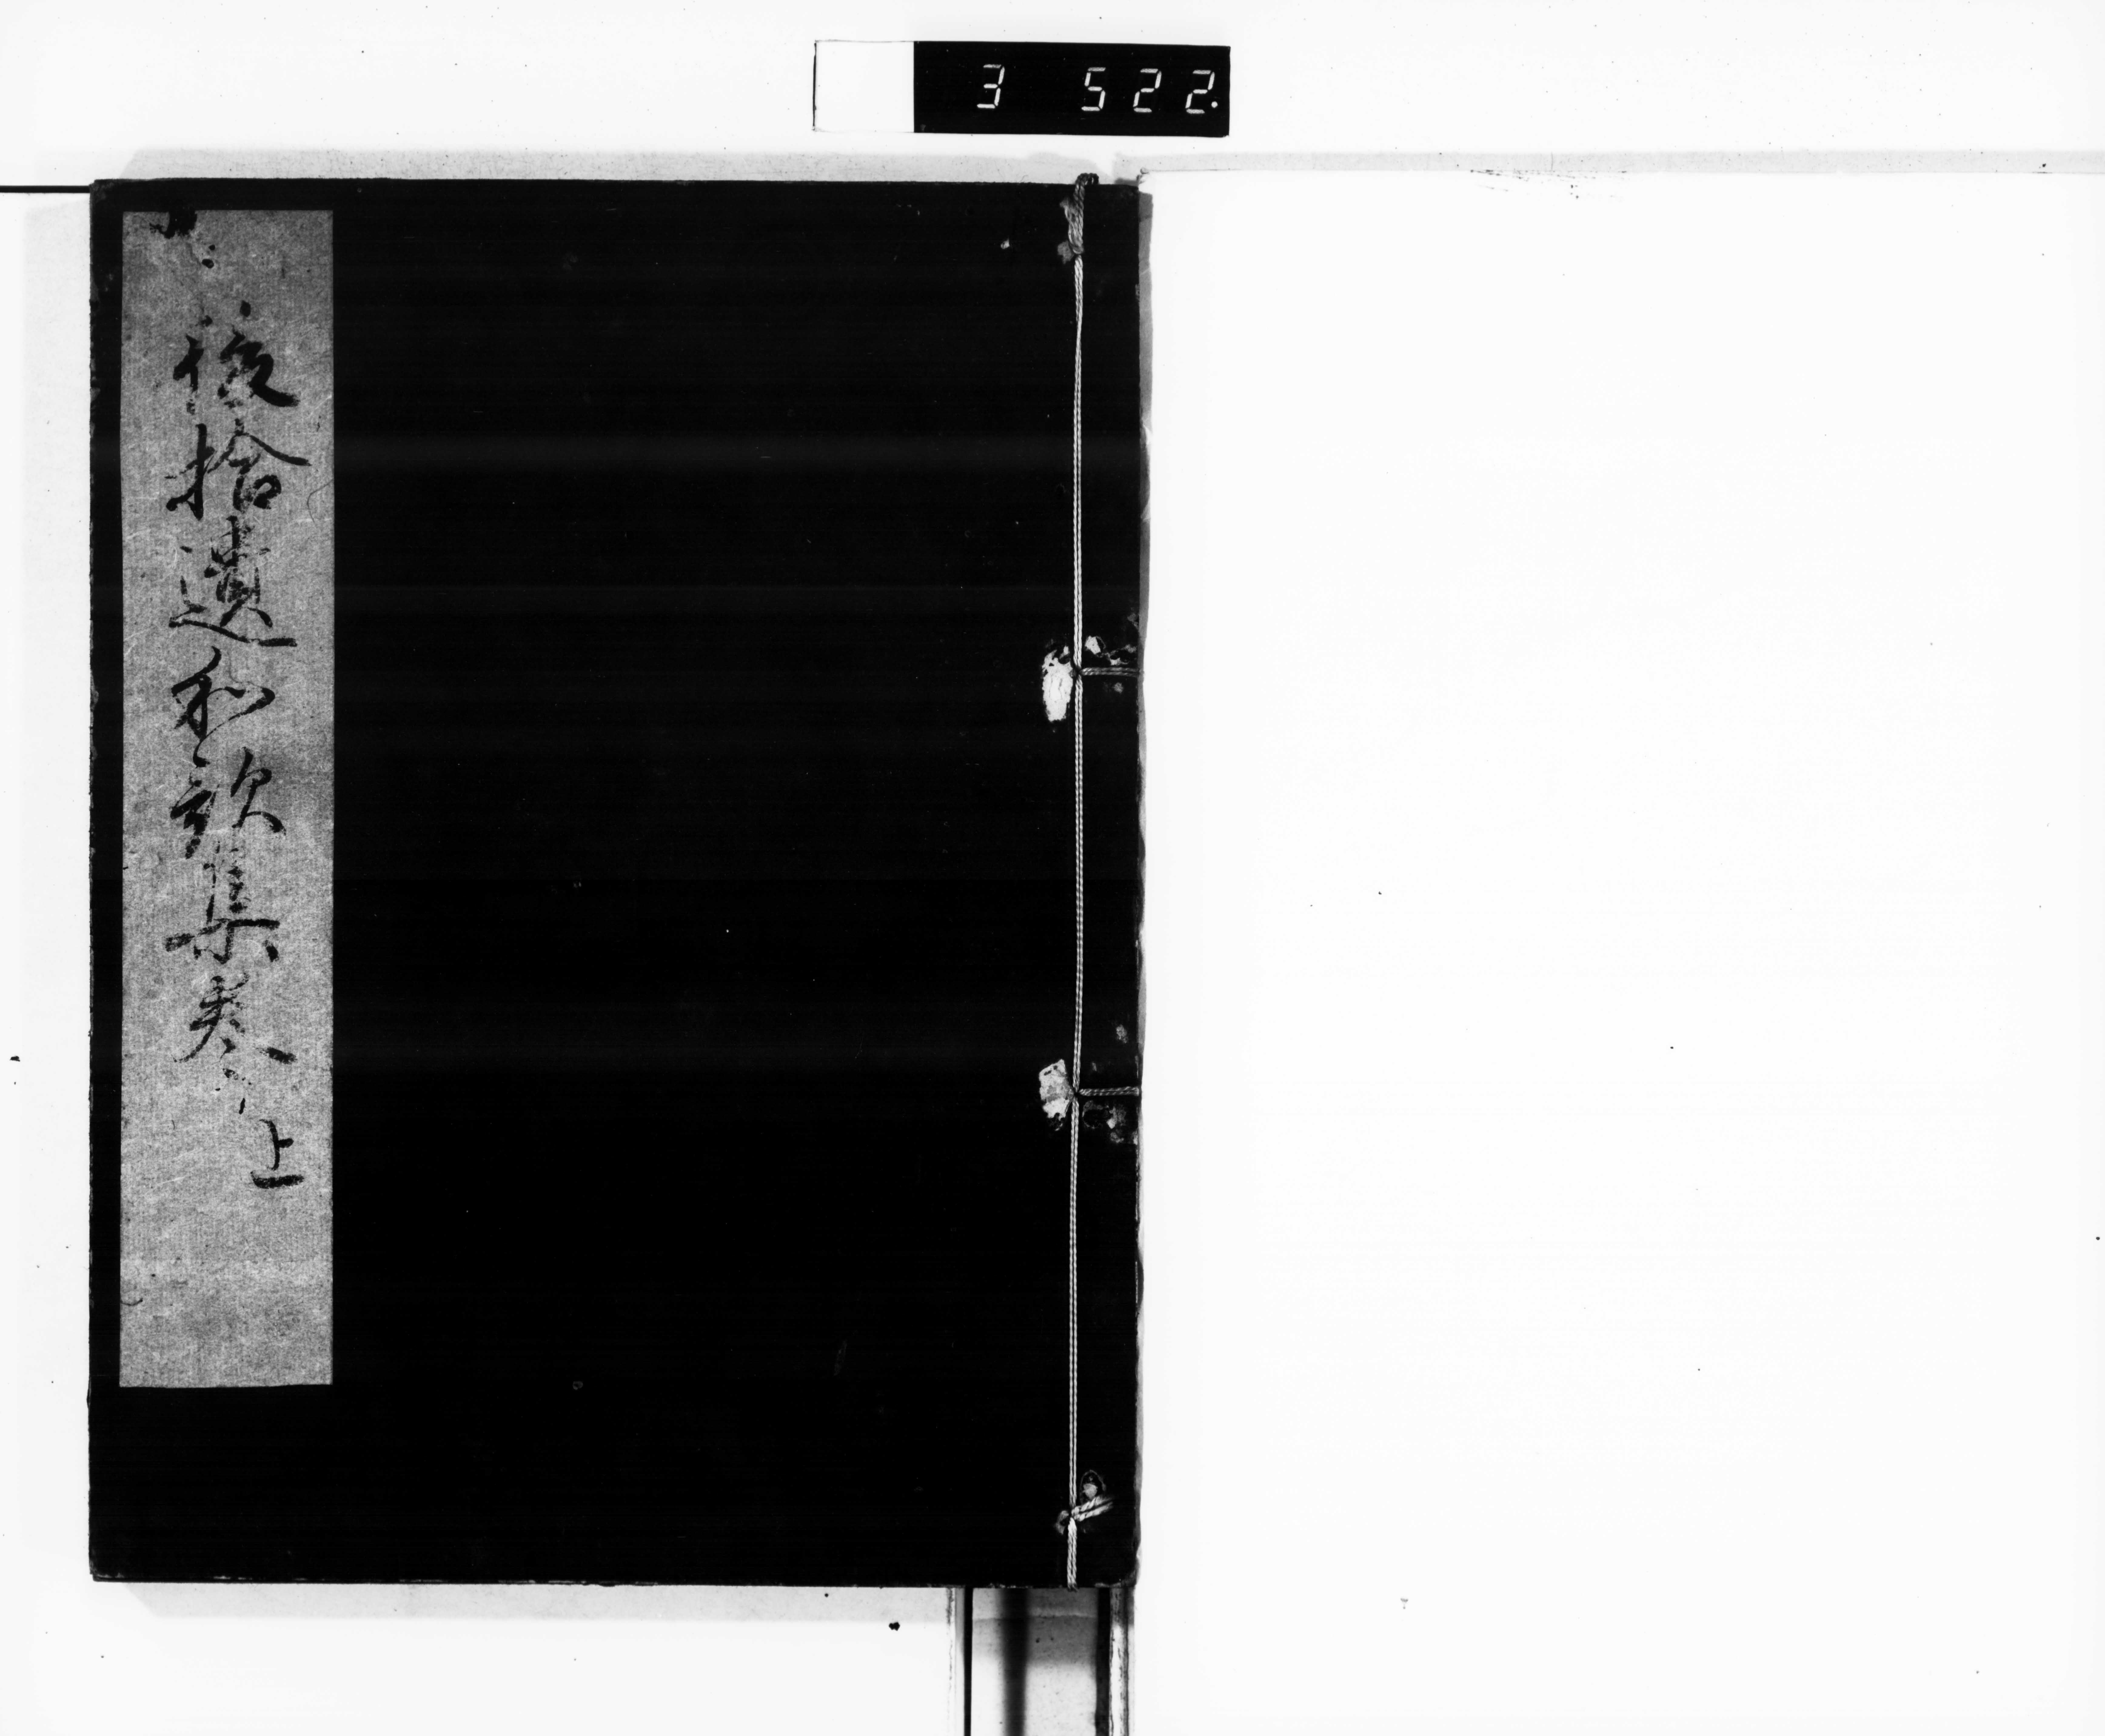 3 522.
後拾遺和歌集巻上